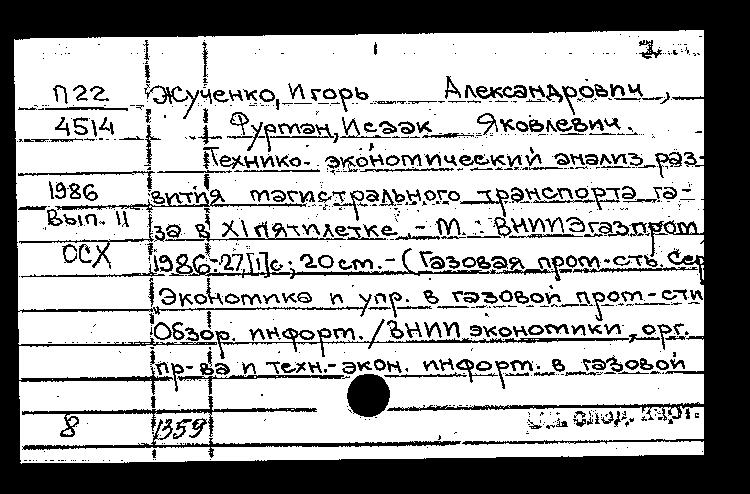 1.
П22 Жученко, Игорь Александрович,
4514 Фурман, Исаак Яковлевич.
Технико-экономический анализ раз-
1986 вития магистрального транспорта га-
Вып. 11 за в XI пятилетке. - М.: ВНИИЭгазпром
ОСХ 1986.-27,[1]с; 20 см. - (Газовая пром-сть. Сер
"Экономика и упр. в газовой пром-сти
Обзор. информ. / ВНИИ экономики, орг.
пр-ва и техн.-экон. информ. в газовой
8 1359 См. след. карт.